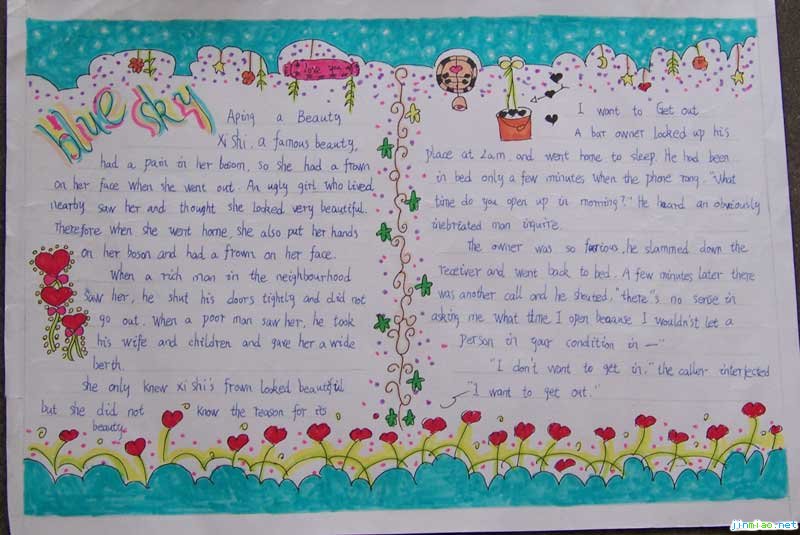 blue sky
I love you
Aping a Beauty
Xi shi, a famous beauty,
had a pain in her bosom, so she had a frown
on her face when she went out. An ugly girl who lived
nearby saw her and thought she looked very beautiful.
Therefore when she went home, she also put her hands
on her boson and had a frown on her face.
When a rich man in the neighbourhood
saw her, he shut his doors tightly and did not
go out. When a poor man saw her, he took
his wife and children and gave her a wide
berth.
She only knew xi shi's frown looked beautiful
but she did not know the reason for its
beauty.
I want to Get out
A bar owner locked up his
place at 2am and went home to sleep. He had been
in bed only a few minutes when the phone rang. "What
time do you open up in morning?" He heard an obviously
inebriated man inquire.
The owner was so furious, he slammed down the
receiver and went back to bed. A few minutes later there
was another call and he shouted, "there's no sense in
asking me what time I open because I wouldn't let a
person in your condition in —"
"I don't want to get in," the caller interjected
— "I want to get out."
jinmiao.net